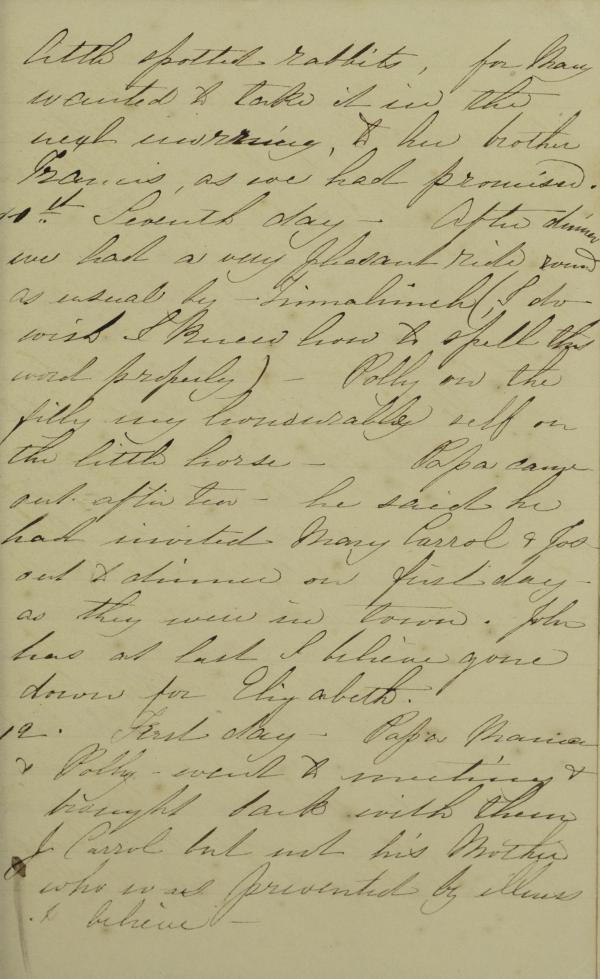 little spotted rabbits, for Mary
wanted to take it in the
next morning, to her brother
Francis, as we had promised.
Seventh day - After dinner
we had a very pleasant ride round
as usual by Tinnahinch (I do
wish I knew how to spell this
word properly) - Polly on the
filly my honourable self on
the little horse - Papa came
out after tea - he said he
had invited Mary Carrol & Jos
out to dinner on first day -
as they were in town. John
has at last I believe gone
down for Elizabeth.
12. First day - Papa Mama
& Polly - went to meeting &
brought back with them
J Carrol but not his Mother
who was prevented by illness
I believe -